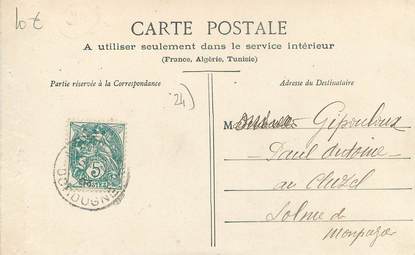 lot
CARTE POSTALE
A utiliser seulement dans le service intérieur
(France, Algérie, Tunisie)
Partie réservée à la Correspondance
Adresse du Destinataire
24)
M Gipouloux
Paul antoine
au
5
POSTES
DORDOGNE
de